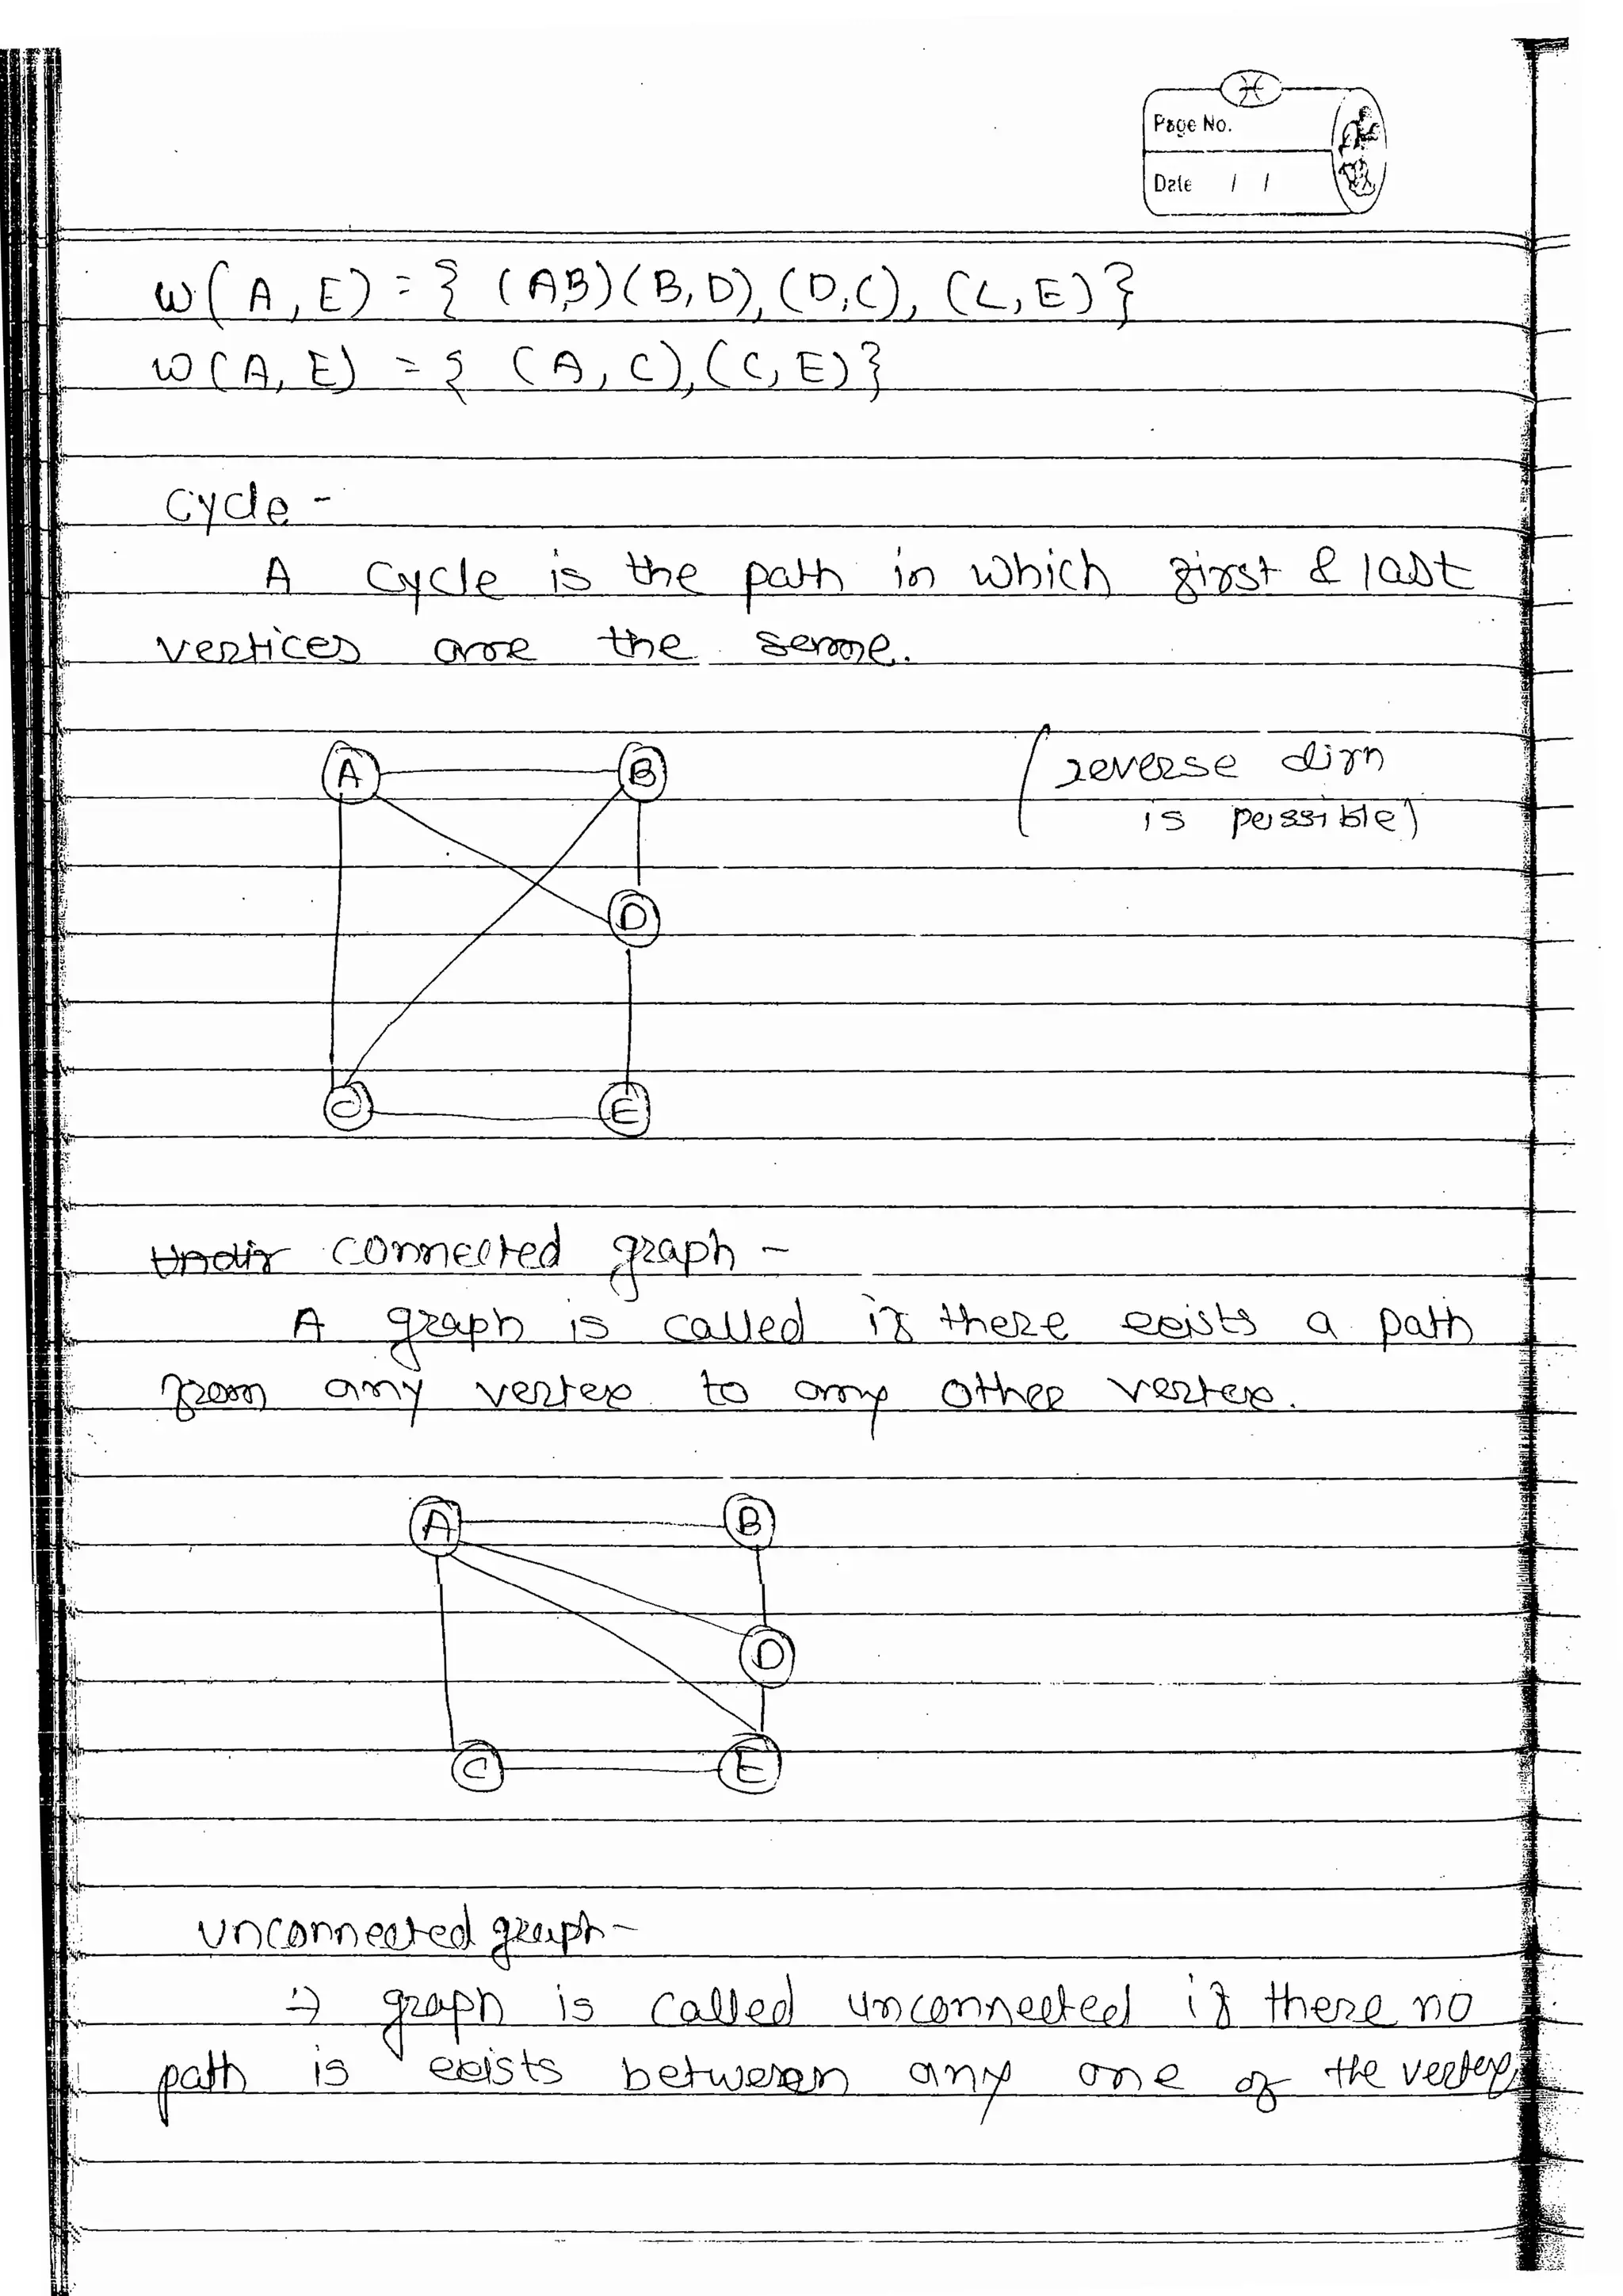 Page No.
Date / /
w(A, E) = { (A,B)(B,D), (D,C), (C,E)}
w(A, E) = { (A, C), (C, E)}
Cycle -
A Cycle is the path in which first & last
vertices are the seme.
A B
(reverse dirn
is possible)
D
C E
Undir connected graph -
A graph is called if there exists a path
from any vertex to any other vertex.
A B
D
C E
unconnected graph -
→ graph is called unconnected if there no
path is exists between any one of the vertex